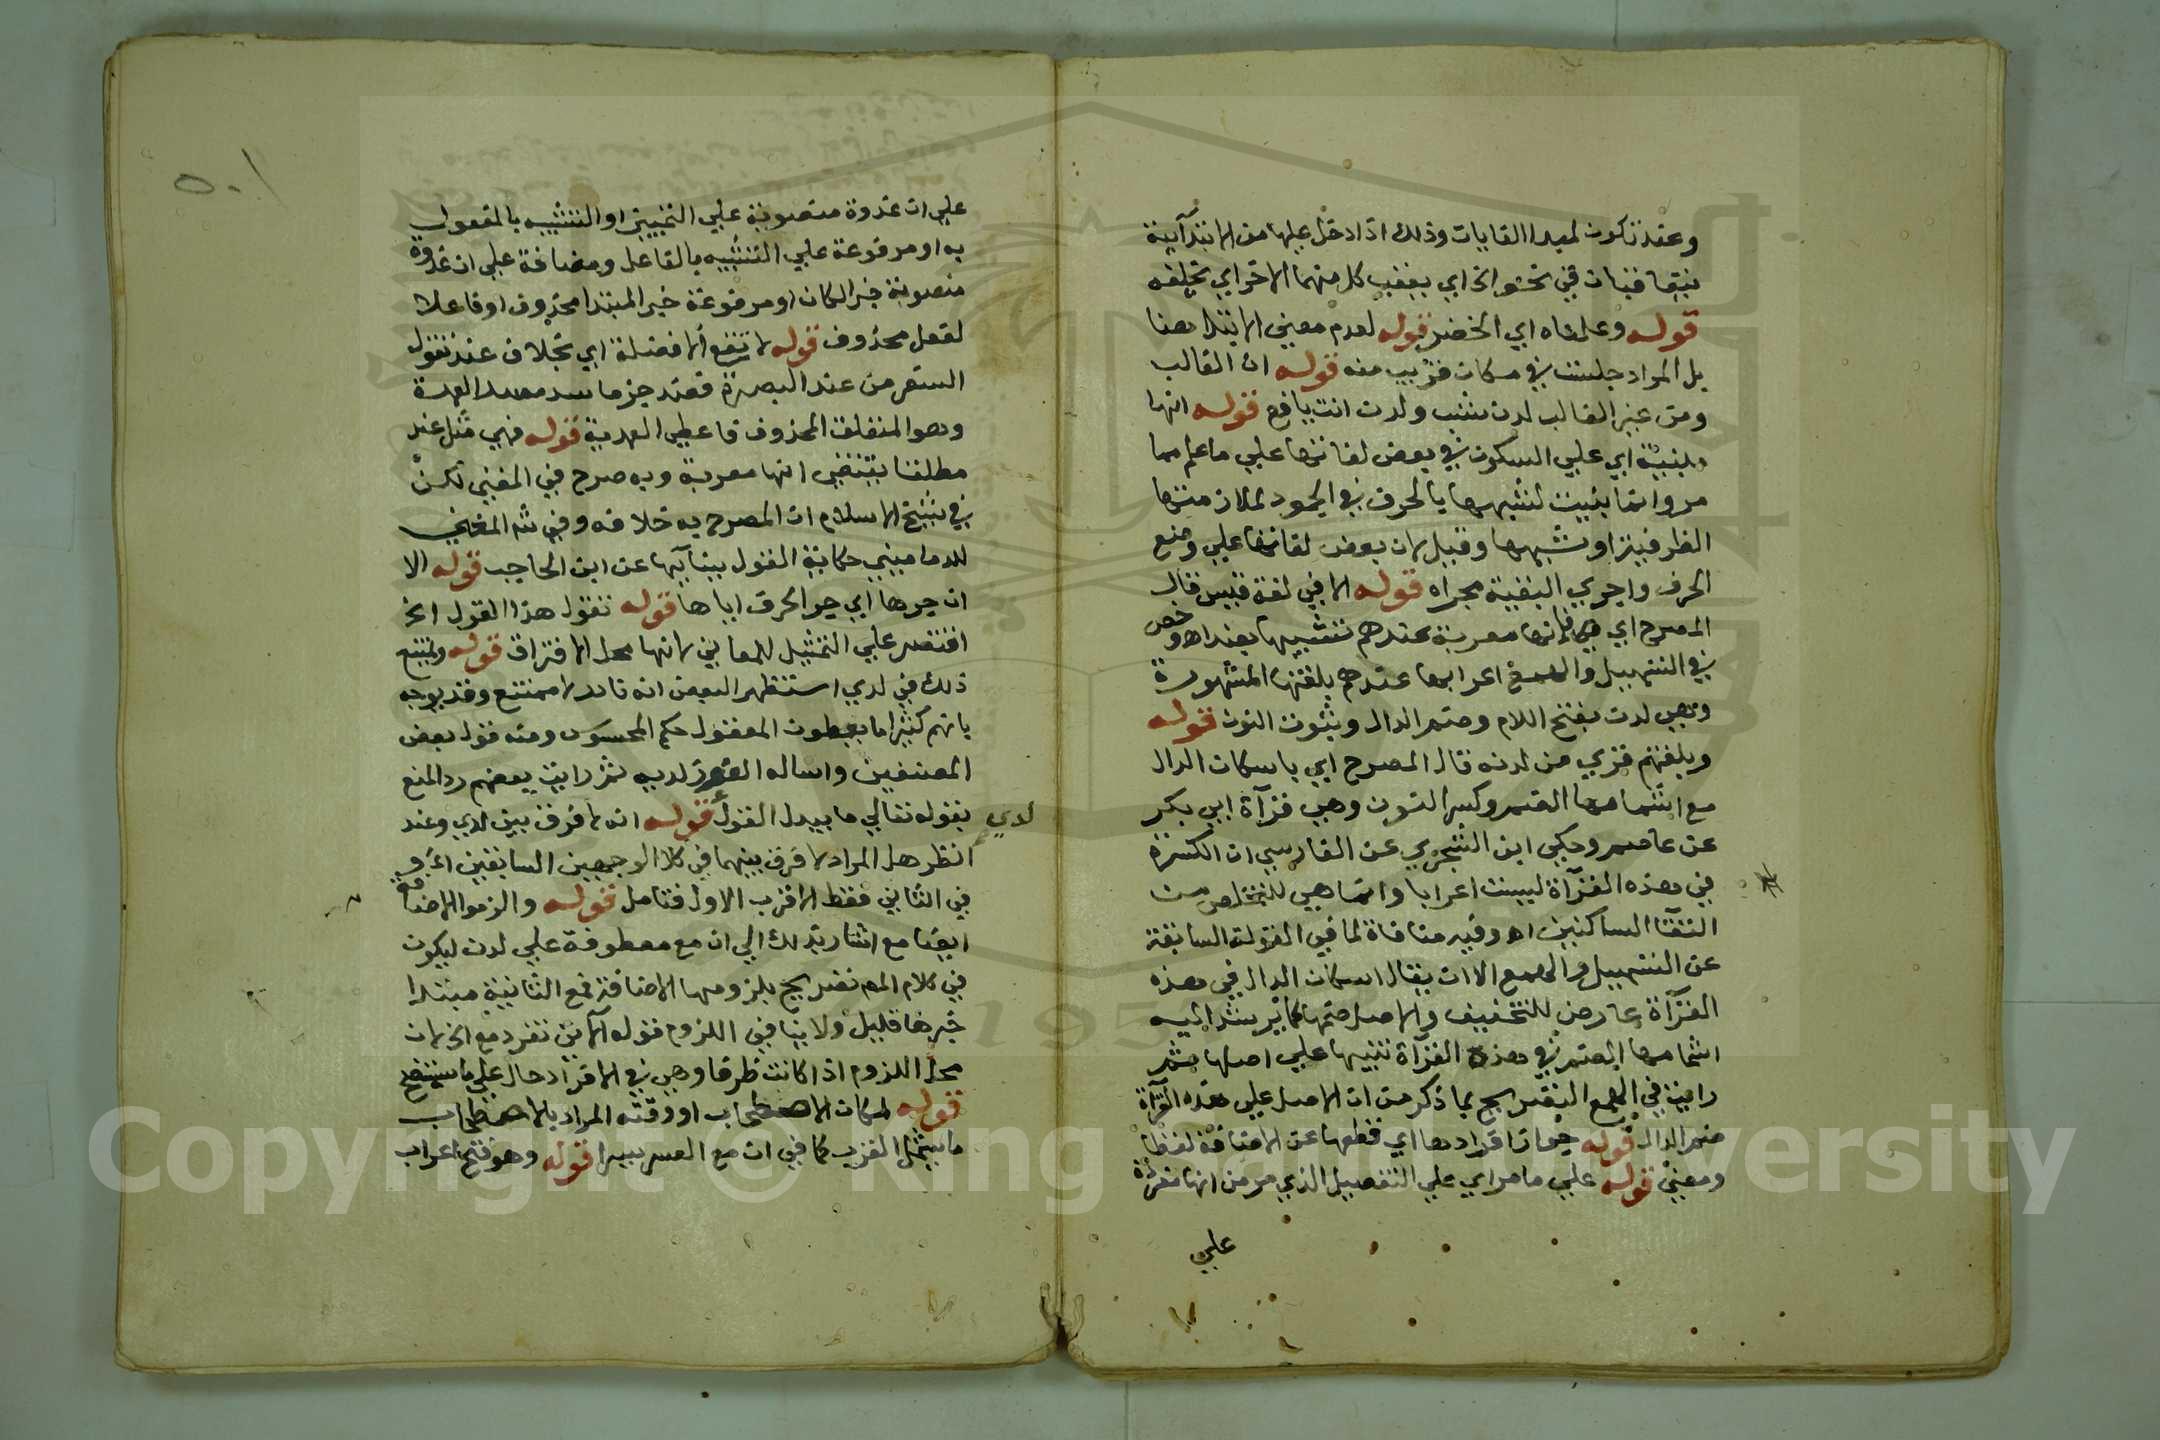 وعند تكون لمبدا الغايات وذلك اذا دخل عليها من الابتدآيية
يتعاقبان في نحو الخ اي يعقب كل منهما الاخر اي تخلفه
قوله وعلمناه اي الخضر قوله لعدم معنى الابتدا هنا
بل المراد جلست في مكان قريب منه قوله ان الغالب
ومن غير الغالب لدن شب ولدن انت يافع قوله انها
مبنية اي علي السكون في بعض لغاتها علي ما علم مما
مر وانما بنيت لشبهها بالحرف في الجمود لملازمتها
الظرفية او شبهها وقيل لان بعض لغاتها علي وضع
الحرف واجري البقية مجراه قوله الا في لغة قيس قال
المصرح اي فانها معربة عندهم تشبيها بعند اه وخص
في التسهيل والهمع اعرابها عندهم بلغتها المشهورة
وهي لدن بفتح اللام وضم الدال وثبوت النون قوله
وبلغتهم قري من لدنه قال المصرح اي باسكان الدال
مع اشمامها الضم وكسر النون وهي قرآة ابي بكر
عن عاصم وحكي ابن الشجري عن الفارسي ان الكسرة
في هذه القرآة ليست اعرابا وانما هي للتخلص من
التقآ الساكنين اه وفيه منافاة لما في القولة السابقة
عن التسهيل والهمع الا ان يقال اسكان الدال في هذه
القرآة عارض للتخفيف والاصل ضمها كما يرشد اليه
اشمامها الضم في هذه القرآة تنبيها علي اصلها ثم
رايت في الهمع التصريح بما ذكر من ان الاصل علي هذه القرآة
ضم الدال قوله جواز افرادها اي قطعها عن الاضافة لفظا
ومعني قوله علي ما مر اي علي التفصيل الذي مر من انها مفردة
علي
١٠٥
علي ان غدوة منصوبة علي التمييز او التشبيه بالمفعول
به او مرفوعة علي التشبيه بالفاعل ومضافة علي ان غدوة
منصوبة خبر الكان او مرفوعة خبر المبتدا محذوف او فاعلا
لفعل محذوف قوله لا تقع الا فضلة اي بخلاف عند تقول
السفر من عند البصرة فعند جزء ما سد مسد العمدة
وهو المتعلق المحذوف فاعطي العمدية قوله فهي مثل عند
مطلقا يقتضي انها معربة وبه صرح في المغني لكن
في شيخ الاسلام ان المصرح به خلافه وفي شم المغني
للدماميني حكاية القول ببنآيها عن ابن الحاجب قوله الا
ان جرها اي جر الحرف اياها قوله تقول هذا القول الخ
اقتصر علي التمثيل للمعاني لانها محل الافتراق قوله ويمتنع
ذلك في لدي استظهر البعض انه نادر لا ممتنع وقد يوجه
بانهم كثيرا ما يعطون المعقول حكم المحسوس ومنه قول بعض
المصنفين واساله الفوز لديه ثم رايت بعضهم رد المنع
بقوله تعالي ما يبدل القول لدي قوله انه لا فرق بين لدي وعند
انظر هل المراد لا فرق بينهما في كلا الوجهين السابقين او
في الثاني فقط الاقرب الاول فتامل قوله والزموا الاضافة
ايضا مع اشار بذلك الي ان مع معطوفة علي لدن ليكون
في كلام المص تصريح بلزومها الاضافة فمع الثانية مبتدا
خبرها قليل ولا ينافي اللزوم قوله الآتي تفرد مع الخ لان
محل اللزوم اذا كانت ظرفا وهي في الافراد حال علي ما سيتضح
قوله لمكان الاصطحاب او وقته المراد بالاصطحاب
ما يشمل القرب كما في ان مع العسر يسرا قوله وهو فتح اعراب